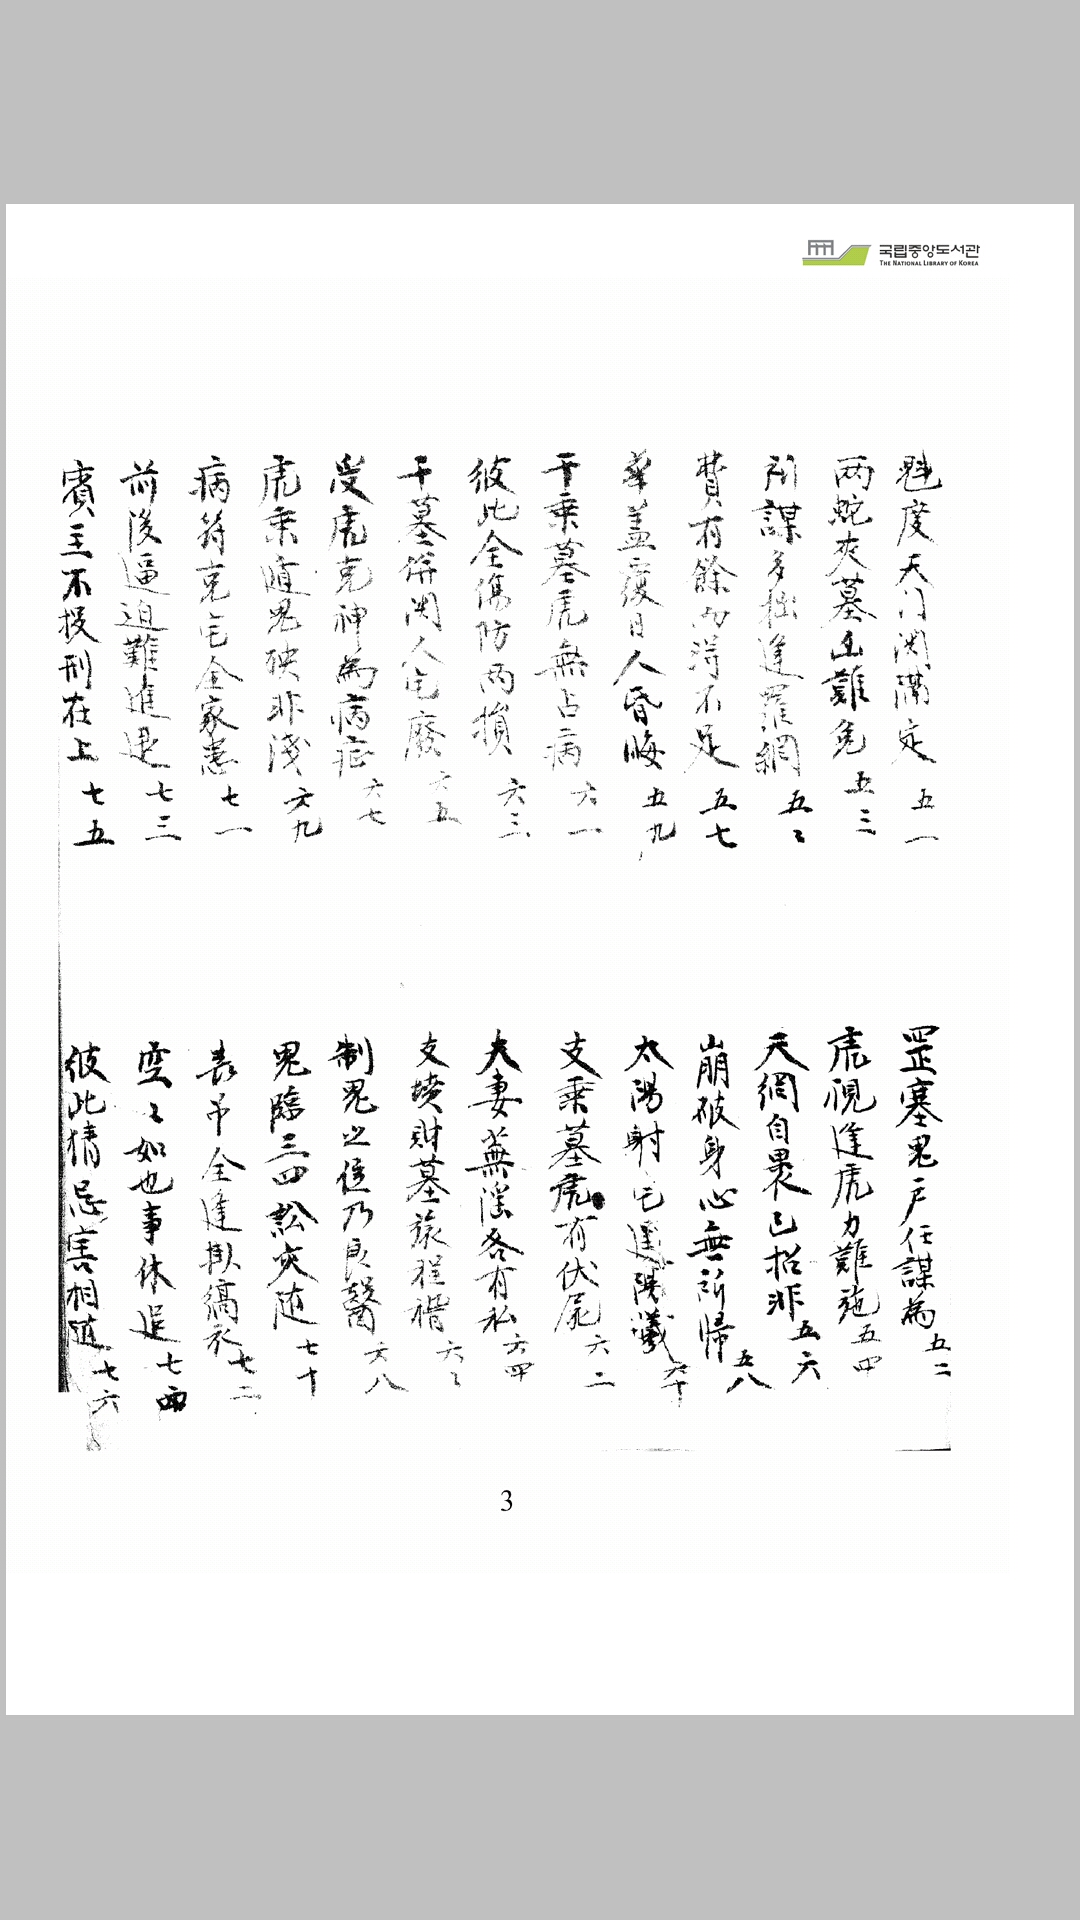 국립중앙도서관
THE NATIONAL LIBRARY OF KOREA
魁度天门関隔定 五一
罡塞鬼戶任謀為 五二
两蛇夾墓凶難免 五三
虎視逢虎力難施 五四
所謀多拙逢羅網 五〻
天網自裹己招非 五六
費有餘而淂不足 五七
崩破身心無所歸 五八
華盖覆日人昏晦 五九
太陽射宅遑陽儀 六十
干乘墓虎無占病 六一
支乘墓虎有伏屍 六二
彼此全傷防两損 六三
夫妻蕪滛各有私 六四
干墓併関人宅廢 六五
支墳財墓旅程稽 六〻
受虎克神為病症 六七
制鬼之位乃良醫 六八
虎乘遁鬼殃非淺 六九
鬼臨三四訟灾随 七十
病符克宅全家患 七一
丧吊全逢掛縞衣 七二
前後逼迫難進退 七三
空〻如也事休追 七四
賓主不投刑在上 七五
彼此猜忌害相随 七六
3